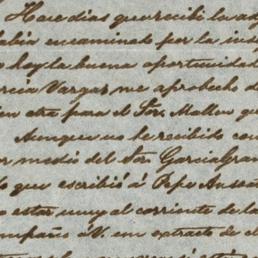 Hace dias que recibi la ad
haber encaminado por la ind
hoy la buena oportunidad
rcia Vargas, me aprobecho d
en otra para el Sor. Mallen qu
Aunque no he recibido con
or medio del Sor. Garcia Gran
lo que escribió á Pepe Ausa
o estar muy al corriente de lo
ompaño á V. un extracto de el